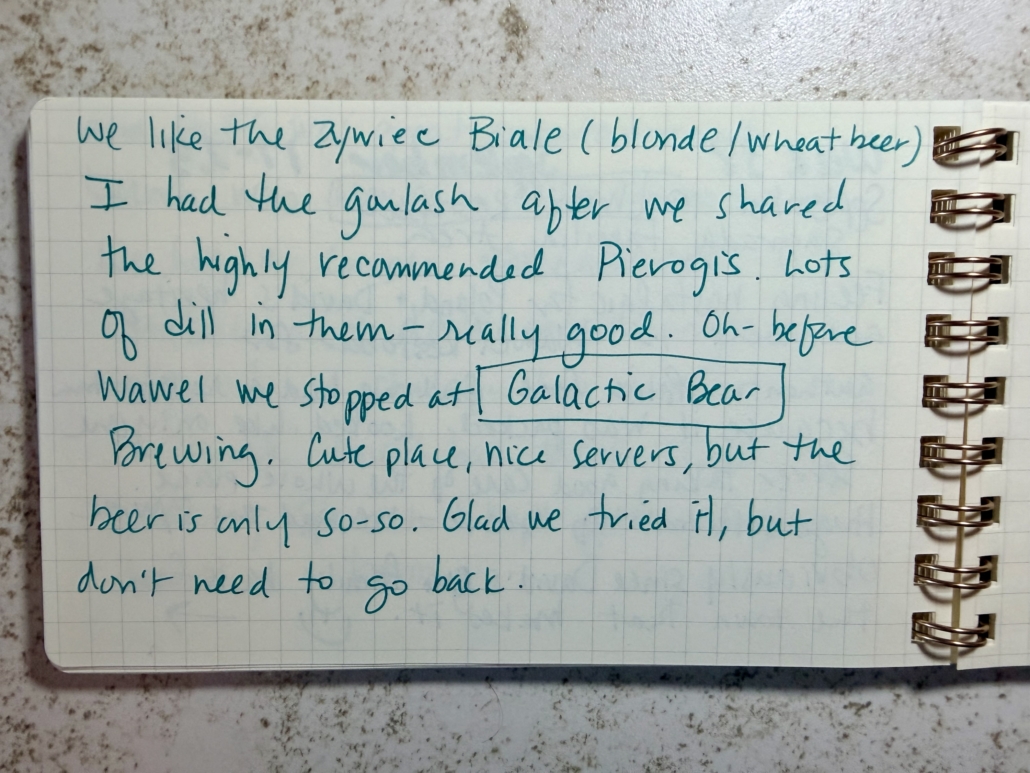 We like the Zywiec Biale (blonde/wheat beer)
I had the goulash after we shared
the highly recommended Pierogis. Lots
of dill in them – really good. Oh - before
Wawel we stopped at Galactic Bear
Brewing. Cute place, nice servers, but the
beer is only so-so. Glad we tried it, but
don't need to go back.